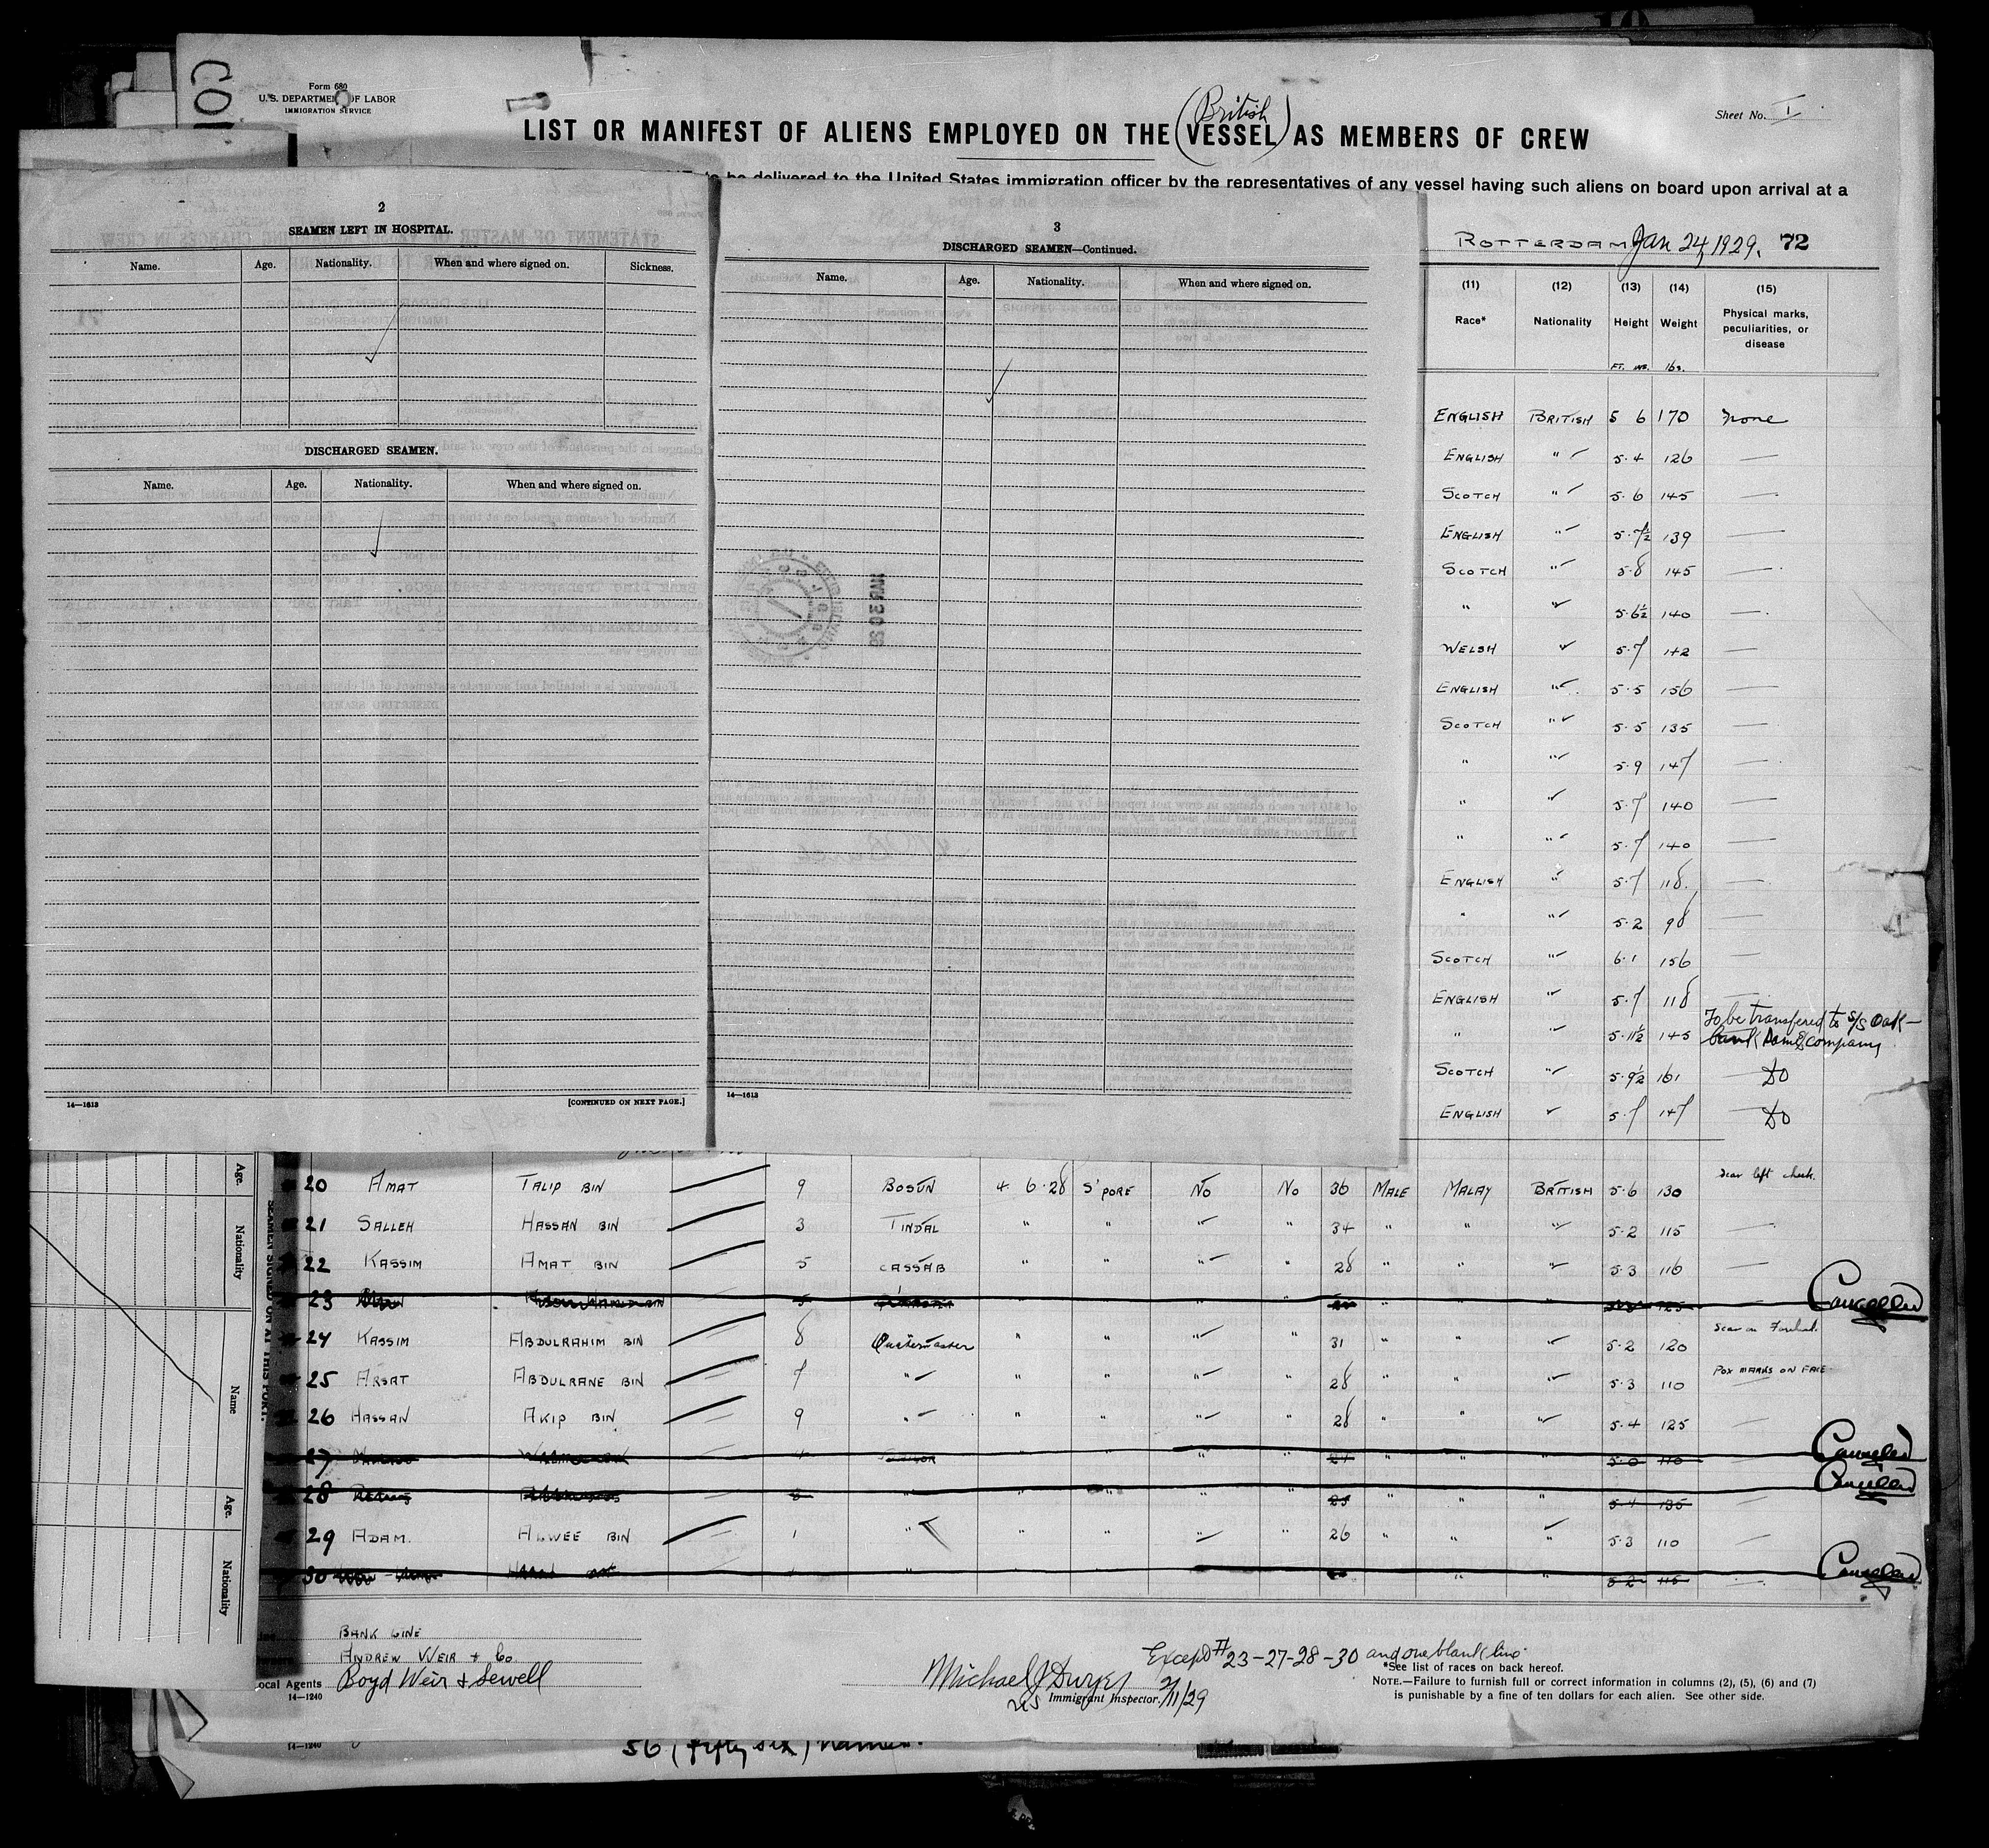 Form 680
U.S. DEPARTMENT OF LABOR
IMMIGRATION SERVICE
Sheet No. I
(British)
LIST OR MANIFEST OF ALIENS EMPLOYED ON THE VESSEL AS MEMBERS OF CREW
to be delivered to the United States immigration officer by the representatives of any vessel having such aliens on board upon arrival at a
port of the United States
ROTTERDAM Jan 24, 1929. 72
2
SEAMEN LEFT IN HOSPITAL.
Name. Age. Nationality. When and where signed on. Sickness.
DISCHARGED SEAMEN.
Name. Age. Nationality. When and where signed on.
14—1613 [CONTINUED ON NEXT PAGE.]
3
DISCHARGED SEAMEN—Continued.
Name. Age. Nationality. When and where signed on.
14—1613
(11) (12) (13) (14) (15)
Race* Nationality Height Weight Physical marks, peculiarities, or disease
FT. INS. lbs.
ENGLISH BRITISH 5 6 170 None
ENGLISH " 5.4 126 —
SCOTCH " 5.6 145 —
ENGLISH " 5.7½ 139 —
SCOTCH " 5.8 145 —
" " 5.6½ 140 —
WELSH " 5.7 142 —
ENGLISH " 5.5 156 —
SCOTCH " 5.5 135 —
" " 5.9 147 —
" " 5.7 140 —
" " 5.7 140 —
ENGLISH " 5.7 118. —
" " 5.2 98 —
SCOTCH " 6.1 156 —
ENGLISH " 5.7 118 —
" " 5.11½ 145 To be transfered to S/S Oak-
bank Same company
SCOTCH " 5.9½ 161 DO
ENGLISH " 5.7 147 DO
20 AMAT TALIP BIN 9 BOSUN 4.6.28 S'PORE No No 36 MALE MALAY BRITISH 5.6 130 Scar left cheek.
21 SALLEH HASSAN BIN 3 TINDAL " " " " 34 " " " 5.2 115 —
22 KASSIM AMAT BIN 5 CASSAB " " " " 28 " " " 5.3 116 —
23 Cancelled
24 KASSIM ABDULRAHIM BIN 8 Quatermaster " " " " 31 " " " 5.2 120 Scar on Forehead.
25 ARSAT ABDULRANE BIN 7 " " " " " 28 " " " 5.3 110 POX MARKS ON FACE
26 HASSAN AKIP BIN 9 " " " " " 28 " " " 5.4 125 —
27 5.0 110 Cancelled
28 5.4 135 Cancelled
29 ADAM. ALWEE BIN 1 " " " " " 26 " " " 5.3 110 —
30 5.2 115 Cancelled
BANK LINE
ANDREW WEIR & Co.
Local Agents Boyd Weir & Sewell
14—1240
Except # 23-27-28-30 and one blank line
Michael J Dwyer
US Immigrant Inspector. 2/11/29
*See list of races on back hereof.
NOTE.—Failure to furnish full or correct information in columns (2), (5), (6) and (7)
is punishable by a fine of ten dollars for each alien. See other side.
Age.
Nationality
Name
Age.
Nationality
SEAMEN SIGNED ON AT THIS PORT.
14—1240
56 (fifty six) names.